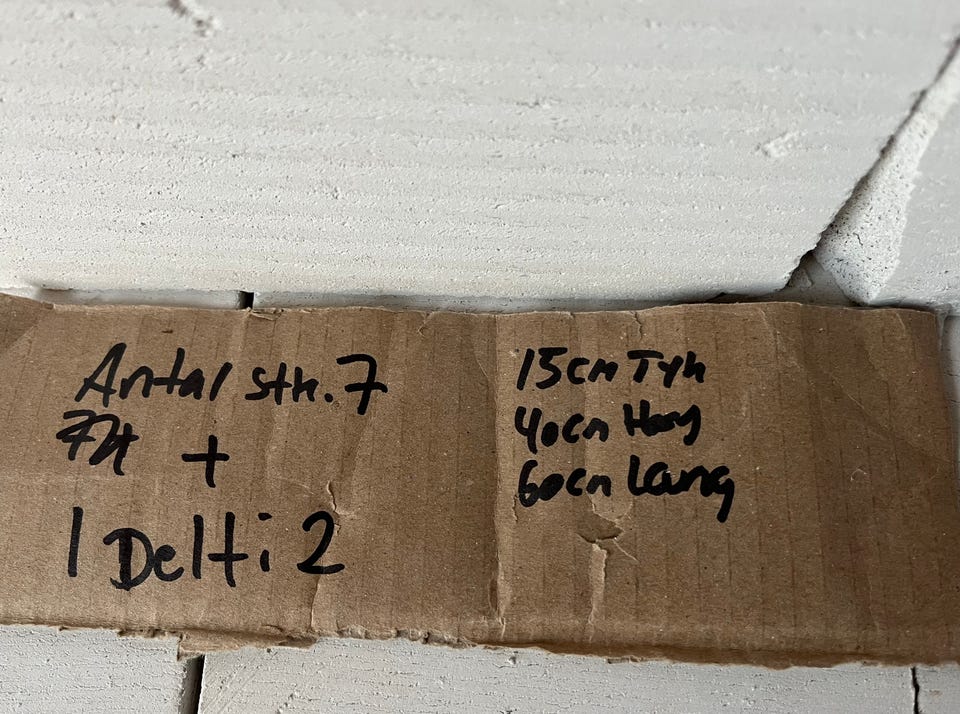 Antal stk. 7
+
1 Delt i 2
15cm Tyk
40cm Høj
60cm Lang